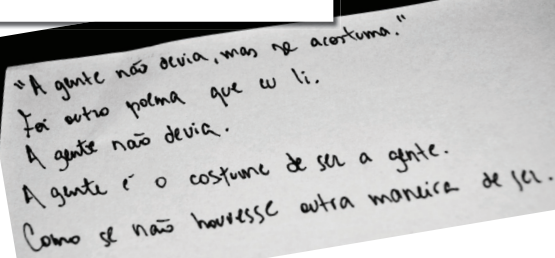 "A gente não devia, mas se acostuma."
Foi outro poema que eu li.
A gente não devia.
A gente é o costume de ser a gente.
Como se não houvesse outra maneira de ser.